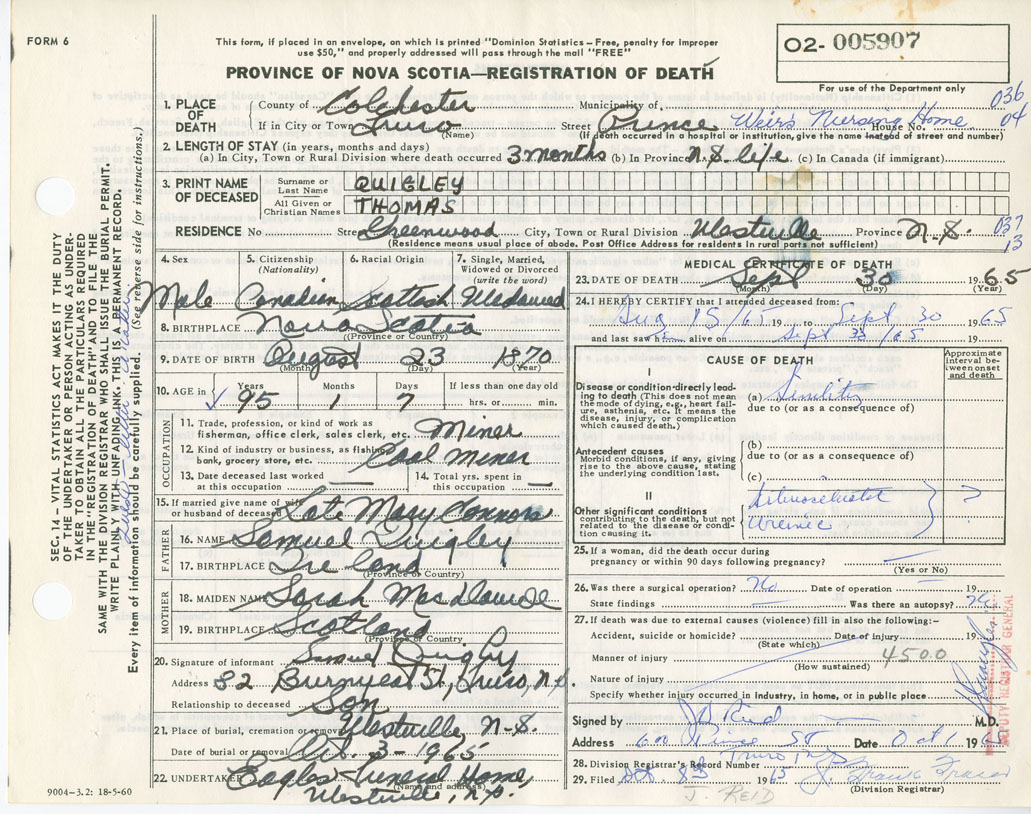 FORM 6
This form, if placed in an envelope, on which is printed "Dominion Statistics – Free, penalty for improper
use $50," and properly addressed will pass through the mail "FREE"
PROVINCE OF NOVA SCOTIA—REGISTRATION OF DEATH
02- 005907
For use of the Department only
036
04
1. PLACE OF DEATH
County of Colchester Municipality of
If in City or Town Truro (Name) Street Prince Weirs Nursing Home House No.
(If death occurred in a hospital or institution, give the name instead of street and number)
2. LENGTH OF STAY (in years, months and days)
(a) In City, Town or Rural Division where death occurred 3 months (b) In Province N.S. life (c) In Canada (if immigrant)
3. PRINT NAME OF DECEASED
Surname or Last Name QUIGLEY
All Given or Christian Names THOMAS
RESIDENCE No Street Greenwood City, Town or Rural Division Westville Province N.S.
037
13
(Residence means usual place of abode. Post Office Address for residents in rural parts not sufficient)
4. Sex Male
5. Citizenship (Nationality) Canadian
6. Racial Origin Scottish
7. Single, Married, Widowed or Divorced (write the word) Widowed
8. BIRTHPLACE Nova Scotia
(Province or Country)
9. DATE OF BIRTH August 23 1870
(Month) (Day) (Year)
10. AGE in Years 95 Months 1 Days 7 If less than one day old hrs. or min.
OCCUPATION
11. Trade, profession, or kind of work as
fisherman, office clerk, sales clerk, etc. Miner
12. Kind of industry or business, as fishing,
bank, grocery store, etc. Coal Miner
13. Date deceased last worked at this occupation —
14. Total yrs. spent in this occupation —
15. If married give name of wife
or husband of deceased Late Mary Connors
FATHER
16. NAME Samuel Quigley
17. BIRTHPLACE Ireland
(Province or Country)
MOTHER
18. MAIDEN NAME Sarah
19. BIRTHPLACE Scotland
(Province or Country)
20. Signature of informant Samuel Quigley
Address 82 Burnyeat St, Truro, N.S.
Relationship to deceased Son
21. Place of burial, cremation or removal Westville N-S.
Date of burial or removal Oct. 3-1965
22. UNDERTAKER Eagles Funeral Home,
(Name and address)
Westville, N.S.
9004–3.2: 18-5-60
MEDICAL CERTIFICATE OF DEATH
23. DATE OF DEATH Sept 30 1965
(Month) (Day) (Year)
24. I HEREBY CERTIFY that I attended deceased from:
Aug 15/65 19 to Sept 30 1965
and last saw h alive on Sept 30/65 19
CAUSE OF DEATH
Approximate interval between onset and death
I
Disease or condition directly leading to death (This does not mean
the mode of dying, e.g., heart failure, asthenia, etc. It means the
disease, injury, or complication which caused death.)
(a) Senility
due to (or as a consequence of)
Antecedent causes
Morbid conditions, if any, giving rise to the above cause, stating
the underlying condition last.
(b)
due to (or as a consequence of)
(c)
II
Other significant conditions
contributing to the death, but not related to the disease or condition causing it.
?
25. If a woman, did the death occur during
pregnancy or within 90 days following pregnancy? —
(Yes or No)
26. Was there a surgical operation? No Date of operation — 19
State findings Was there an autopsy? No
27. If death was due to external causes (violence) fill in also the following:–
Accident, suicide or homicide? Date of injury 19
(State which)
Manner of injury 4500
(How sustained)
Nature of injury
Specify whether injury occurred in industry, in home, or in public place
Signed by J B Reid M.D.
Address Prince St Date Oct 1 196
Truro N.S.
28. Division Registrar's Record Number
29. Filed Oct. 8th 1965 J. Frank
(Division Registrar)
J. REID
DEPUTY REGISTRAR GENERAL
SEC. 14 – VITAL STATISTICS ACT MAKES IT THE DUTY
OF THE UNDERTAKER OR PERSON ACTING AS UNDER-
TAKER TO OBTAIN ALL THE PARTICULARS REQUIRED
IN THE "REGISTRATION OF DEATH" AND TO FILE THE
SAME WITH THE DIVISION REGISTRAR WHO SHALL ISSUE THE BURIAL PERMIT.
WRITE PLAINLY WITH UNFADING INK. THIS IS A PERMANENT RECORD.
Every item of information should be carefully supplied. (See reverse side for instructions.)